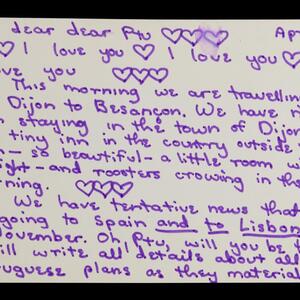 dear dear Ptu ♡♡♡♡ Apr
♡ I love you ♡ I love you ♡
ove you ♡♡♡
This morning we are travellin
Dijon to Besançon. We have n
n staying in the town of Dijon
tiny inn in the country outside
n - so beautiful - a little room w
ight - and roosters crowing in th
rning. ♡♡♡
We have tentative news that
going to Spain and to Lisbon
November. Oh, Ptu, will you be
ill write all details about all
uguese plans as they material